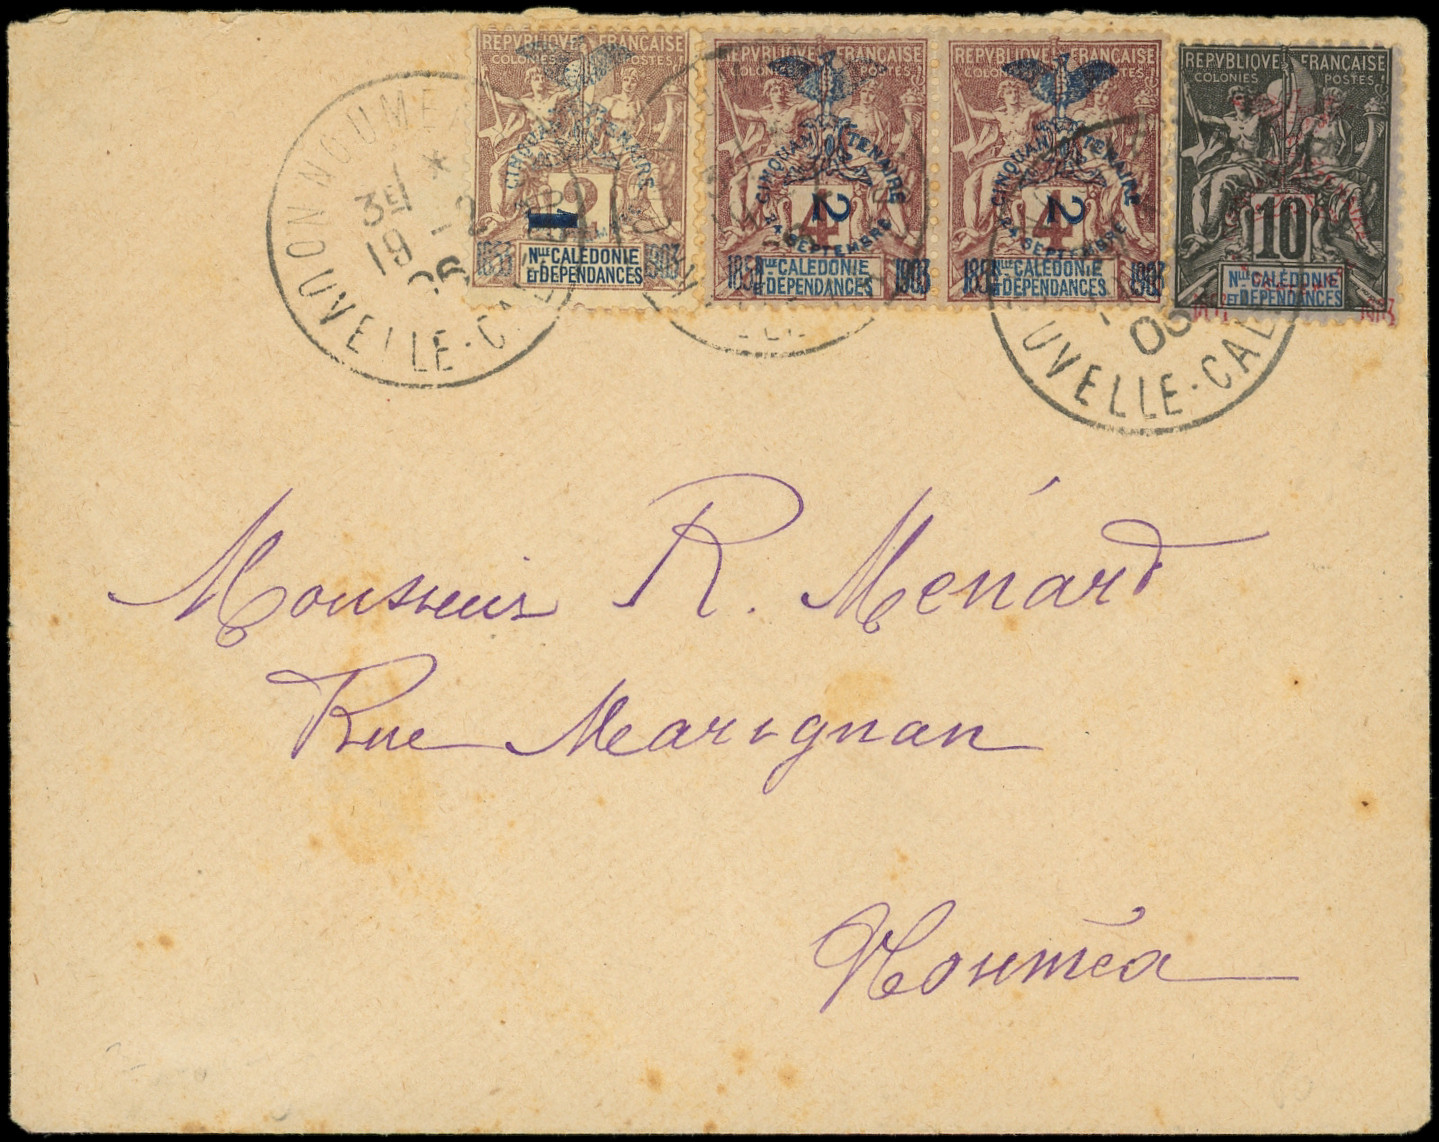 REPVBLIQVE FRANÇAISE
COLONIES POSTES
CINQUANTENAIRE
1
2
1853 1903
Nlle CALÉDONIE
ET DÉPENDANCES
REPVBLIQVE FRANÇAISE
COLONIES POSTES
CINQUANTENAIRE
2
4
24 SEPTEMBRE
1853 1903
Nlle CALÉDONIE
ET DÉPENDANCES
REPVBLIQVE FRANÇAISE
COLONIES POSTES
CINQUANTENAIRE
2
4
24 SEPTEMBRE
1853 1903
Nlle CALÉDONIE
ET DÉPENDANCES
REPVBLIQVE FRANÇAISE
COLONIES POSTES
10
Nlle CALÉDONIE
ET DÉPENDANCES
1903
NOUMEA
19
06
UVELLE-CAL
Monsieur R. Ménard
Rue Marignan
Nouméa